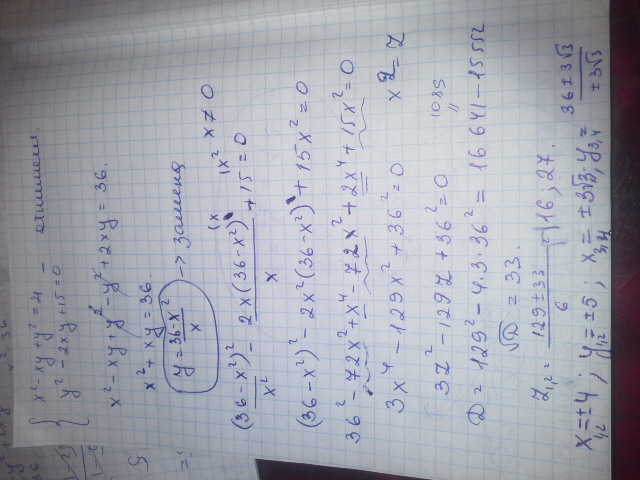 { x² - xy + y² = 21 -
y² - 2xy + 15 = 0
x² - xy + y² - y² + 2xy = 36.
x² + xy = 36.
y = 36-x² / x → замена x ≠ 0
(36-x²)² / x² - 2x(36-x²) / x + 15 = 0
(36-x²)² - 2x²(36-x²) + 15x² = 0
36² - 72x² + x⁴ - 72x² + 2x⁴ + 15x² = 0
3x⁴ - 129x² + 36² = 0 x² = z
3z² - 129z + 36² = 0
D = 129² - 4·3·36² = 16641 - 15552 = 1089
√D = 33.
z₁,₂ = 129±33 / 6 = 16; 27.
x₁,₂ = ±4; y₁,₂ = ±5; x₃,₄ = ±3√3; y₃,₄ = 36±3√3 / ±3√3